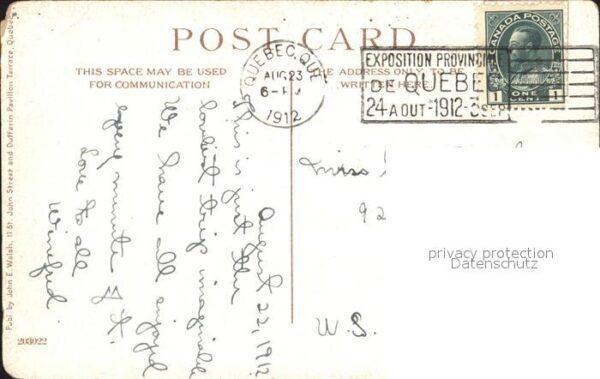 POST CARD
THIS SPACE MAY BE USED
FOR COMMUNICATION
THE ADDRESS ONLY TO BE
WRITTEN HERE
QUEBEC, QUE.
AUG 23
6-PM
1912
EXPOSITION PROVINCI
DE QUEBE
24 AOUT-1912-3 SEP
CANADA POSTAGE
1 ONE CENT 1
August 22, 1912
This is just the
loveliest trip imaginable
We have all enjoyed
every minute of it.
Love to all
Winifred
Miss
92
U.S.
privacy protection
Datenschutz
Publ. by John E. Walsh, 11 St. John Street and Dufferin Pavillon Terrace, Quebec
203022